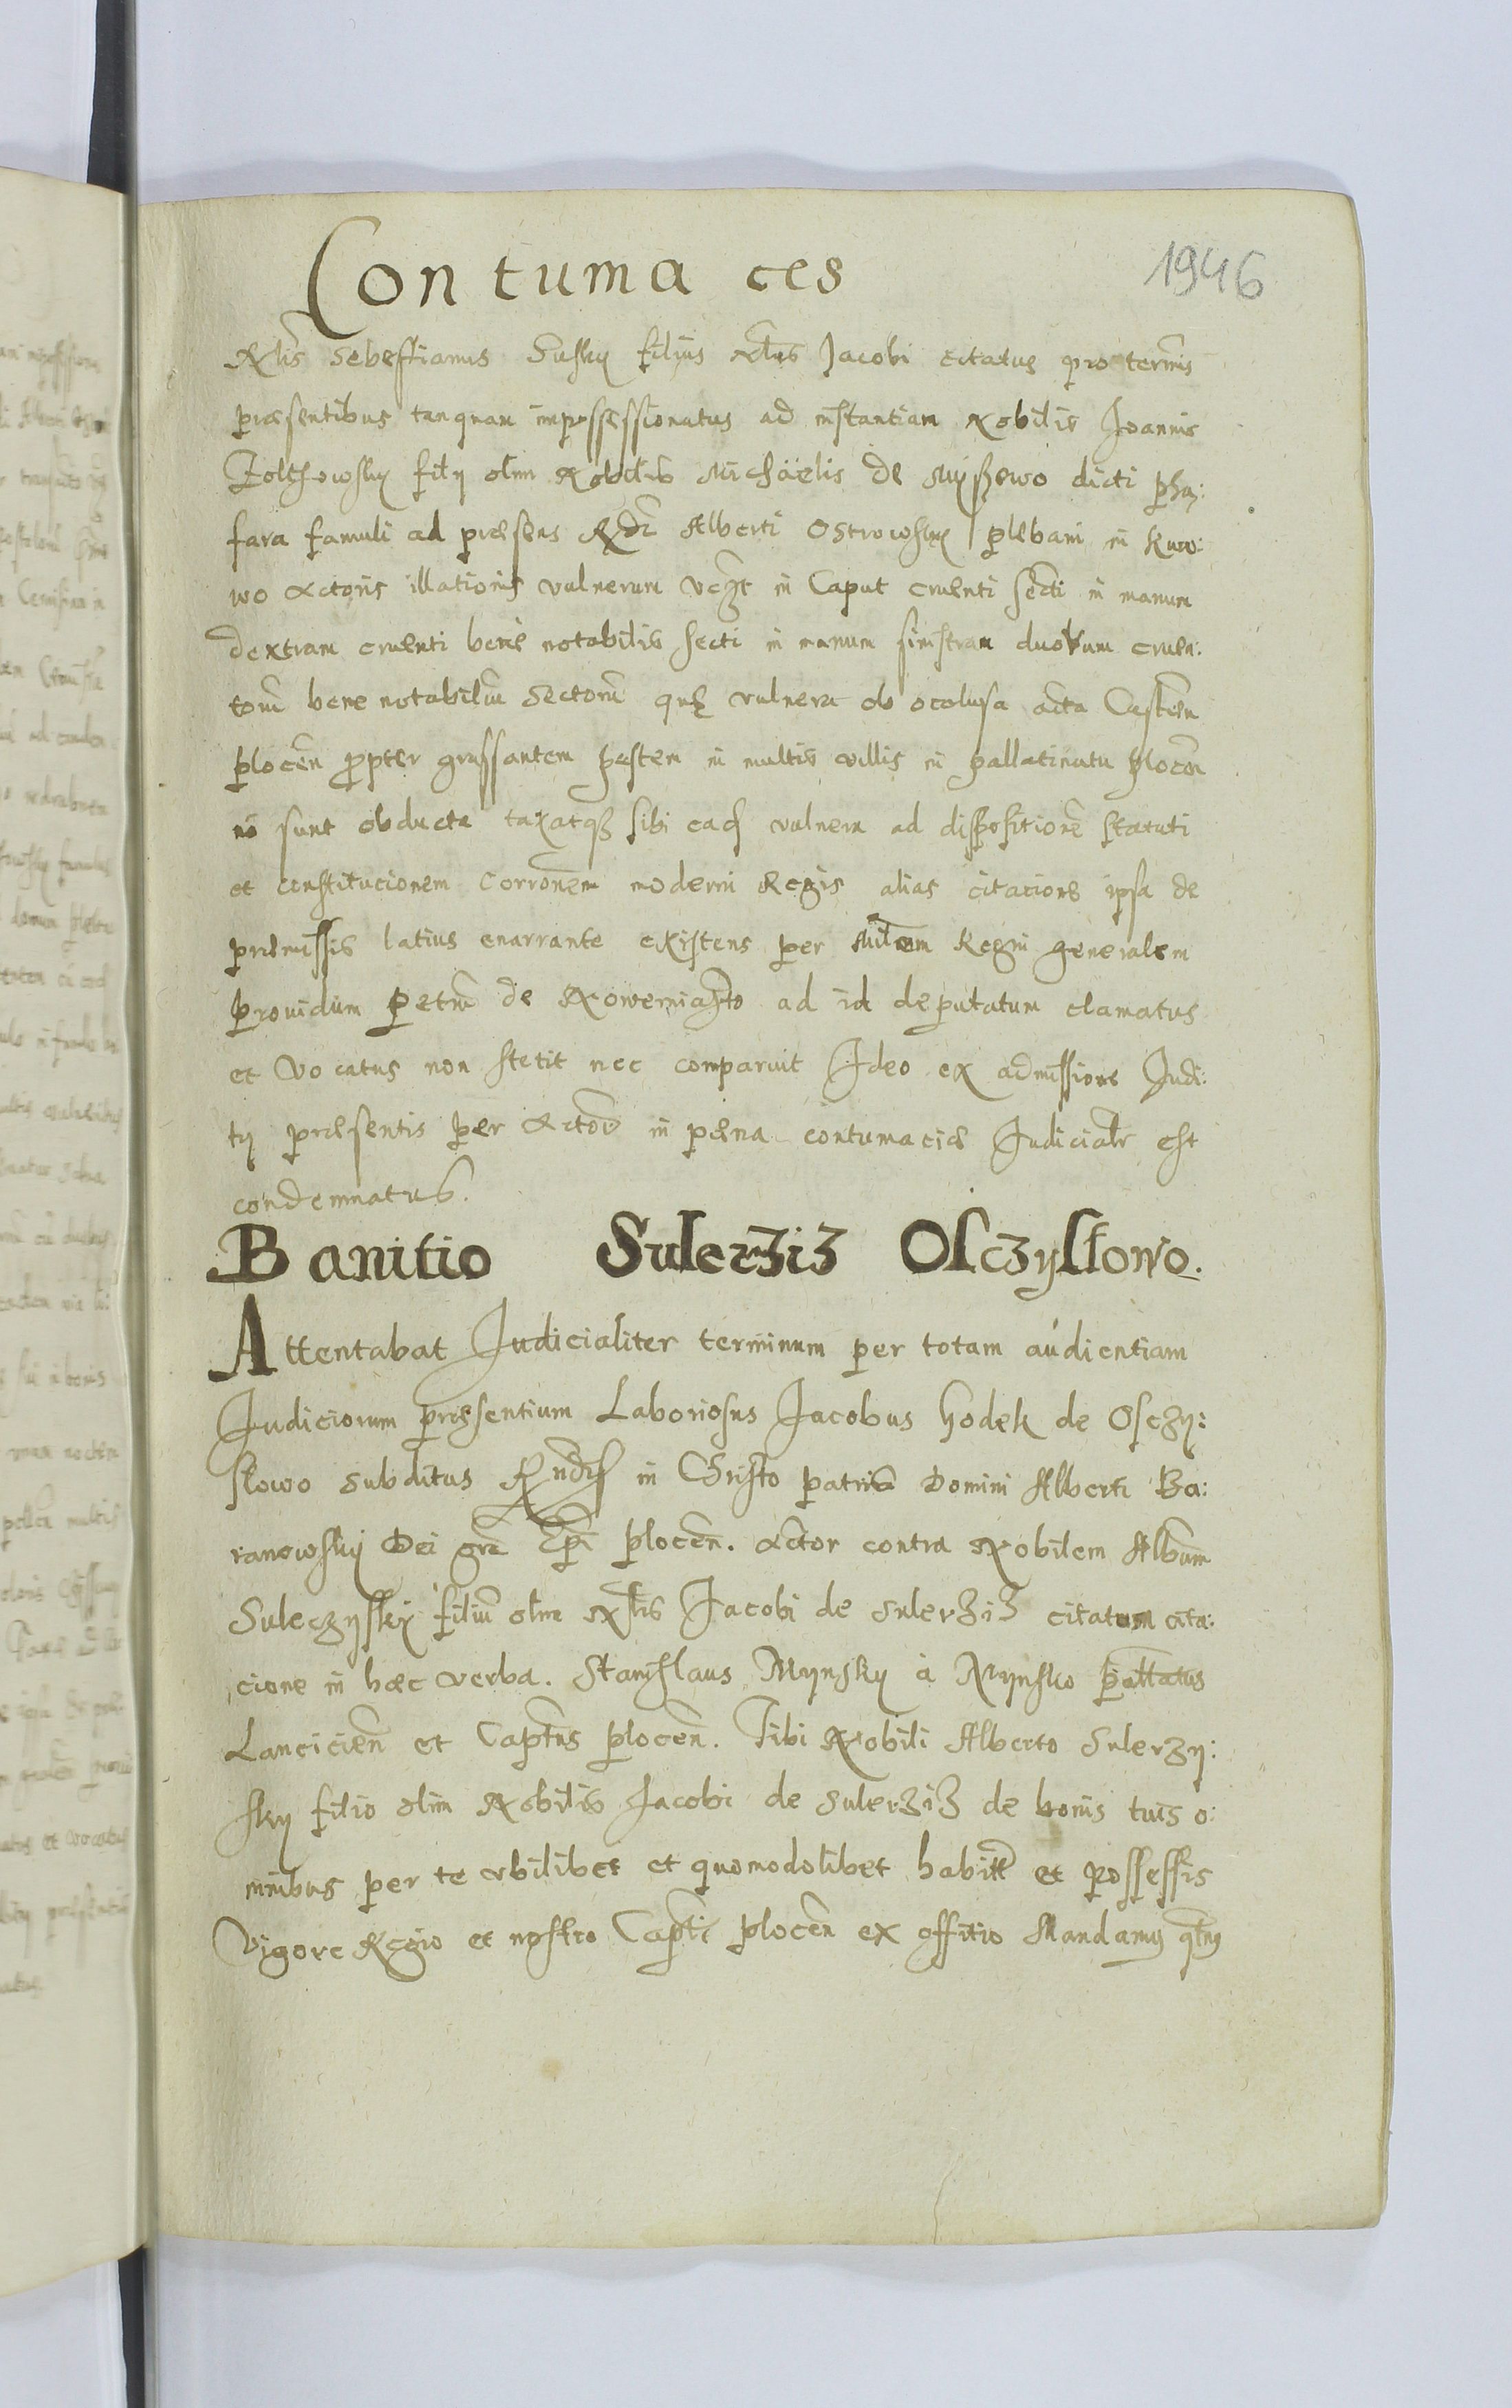 Contumaces
1946
Nlis Sebestianus Suskÿ filius Nlis Jacobi citatus pro termis
præsentibus tanquam impossessionatus ad instantiam Nobilis Joannis
filÿ olim Nobilis Michäelis de Mÿszewo dicti
fara famuli ad præsens Rdi Alberti Ostrowskÿ plebani in Kuro:
wo Actoris illationis vulnerum vczt in Caput cruenti secti in manum
dextram cruenti bene notabilis secti in manum sinistram duorum cruen:
torū bene notabiliū sectorū quę vulnera ob oclusa acta Castren
plocen propter grassantem pestem in multis villis in pallatinatu plocen
nō sunt obducta taxatqz sibi eadē vulnera ad dispositionē statuti
et constitucionem Corronem moderni Regis alias citacione ipsa de
præmissis latius enarrante existens per Miltem Regni generalem
prouidum Petrū de Nowemiasto ad id deputatum clamatus
et Vocatus non stetit nec comparuit Ideo ex admissione Judi:
tÿ præsentis per Actorē in pæna contumaciæ Judicialr est
condemnatus.
Banitio Sulerziz Osczÿslowo.
Attentabat Judicialiter terminum per totam audientiam
Judiciorum præsentium Laboriosus Jacobus Godek de Osczÿ:
slowo subditus Rndi in Christo patris Domini Alberti Ba:
ranowskÿ Dei gra Epi plocen. Actor contra Nobilem Albūm
Suleczÿskÿ filiū olim Nlis Jacobi de Sulerziz citatum cita:
cione in hæc verba. Stanislaus Mÿnskÿ à Mÿnsko pallatus
Lancicien et Captns plocen. Tibi Nobili Alberto Sulerzÿ:
skÿ filio olim Nobilis Jacobi de Sulerziz de bonis tuis o:
mnibus per te vbilibet et quomodolibet habitt et possessis
Vigore Regio et nostro Captli plocen ex offitio Mandamus qtns